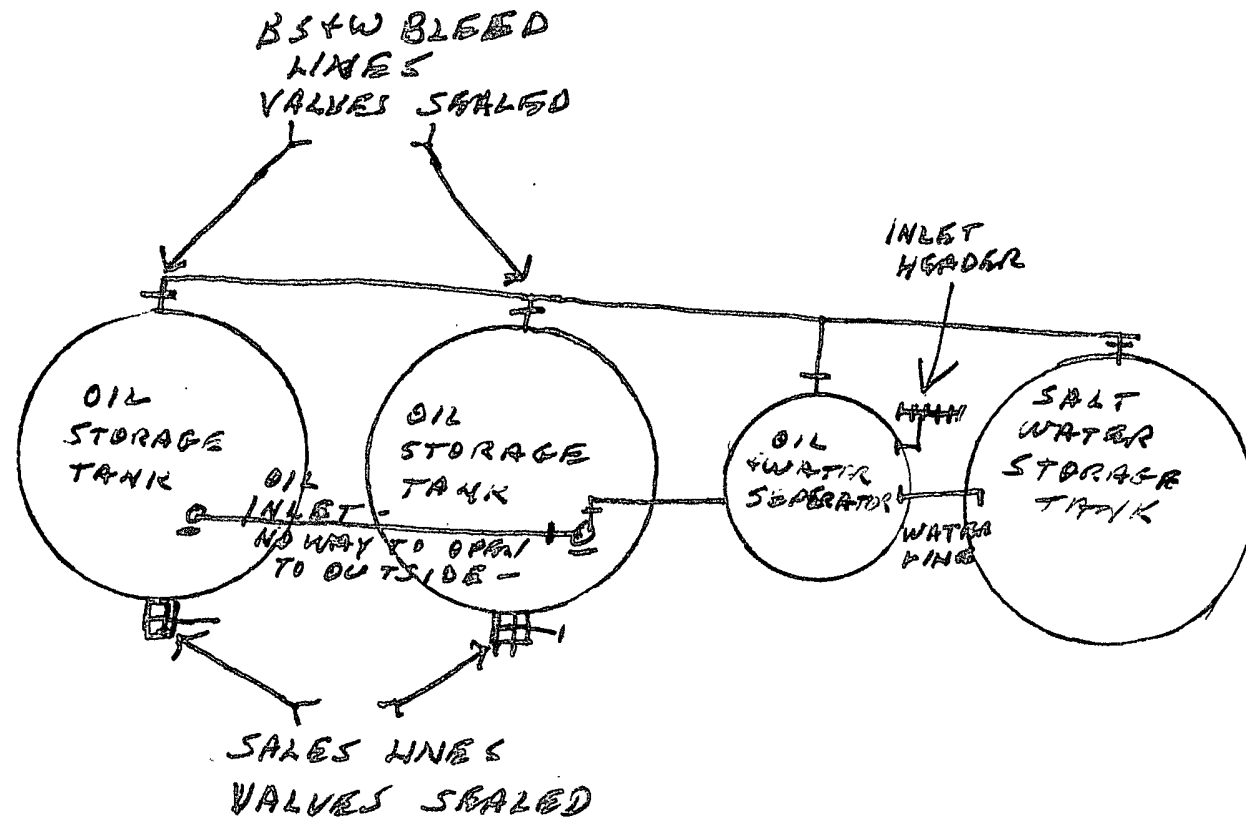 BS+W BLEED
LINES
VALVES SEALED
INLET
HEADER
OIL
STORAGE
TANK
OIL
INLET -
NO WAY TO OPEN
TO OUTSIDE -
OIL
STORAGE
TANK
OIL
+WATER
SEPERATOR
WATER
LINE
SALT
WATER
STORAGE
TANK
SALES LINES
VALVES SEALED